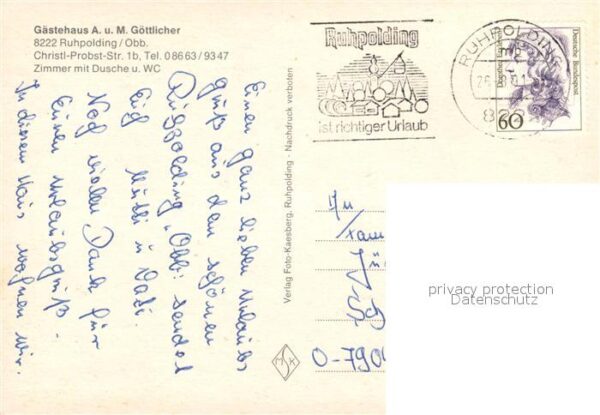 Gästehaus A. u. M. Göttlicher
8222 Ruhpolding / Obb.
Christl-Probst-Str. 1b, Tel. 0 86 63 / 93 47
Zimmer mit Dusche u. WC
Einen ganz lieben Urlaubs
gruß aus dem schönen
Ruhpolding, Obb. sendet
Euch Mutti u Vati.
Noch vielen Dank für
Euren Urlaubsgruß.
In diesem Haus wohnen wir.
Verlag Foto-Kaesberg, Ruhpolding · Nachdruck verboten
Ruhpolding
ist richtiger Urlaub
RUHPOLDING
60
Deutsche Bundespost
An
Fam
O-790
privacy protection
Datenschutz